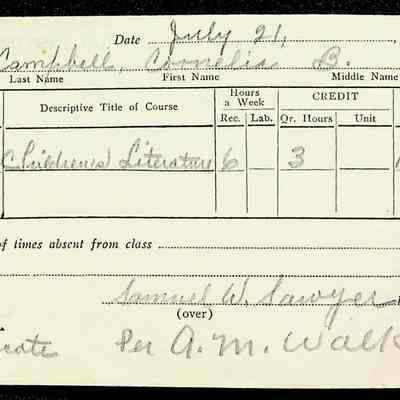 Date July 21,
Campbell, Cornelia B.
Last Name First Name Middle Name
Descriptive Title of Course Hours a Week CREDIT
Rec. Lab. Qr. Hours Unit
Children's Literature 6 3
of times absent from class
Samuel W. Sawyer
(over)
Per A. M. Walk